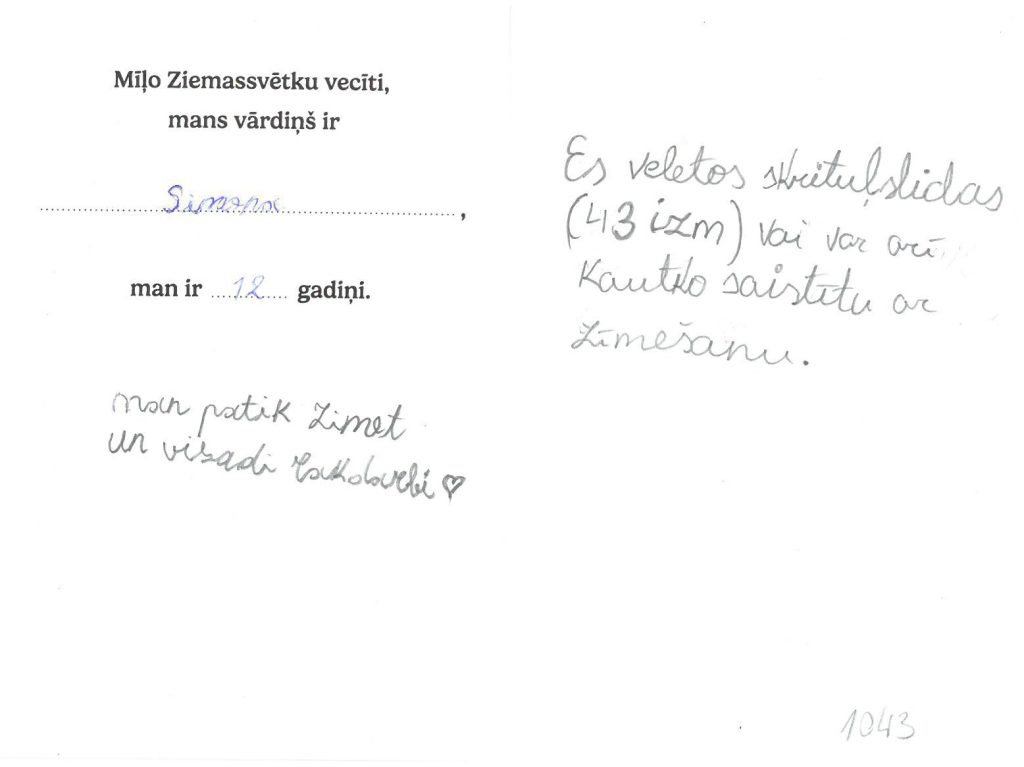 Mīļo Ziemassvētku vecīti,
mans vārdiņš ir
Simona,
man ir 12 gadiņi.
man patik zimet
un visadi rokdarbi ♡
Es veletos skrituļslidas
(43 izm) vai var arī
kautko saistītu ar
zīmešanu.
1043